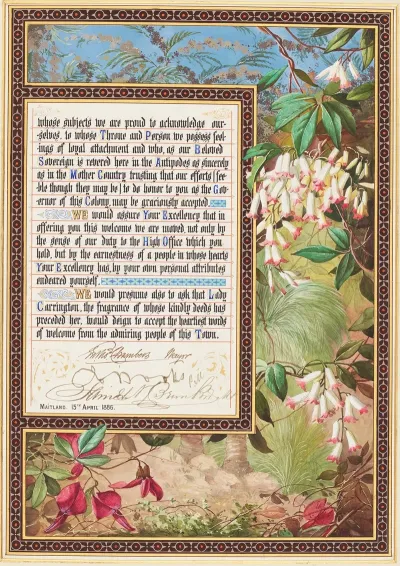 whose subjects we are proud to acknowledge our-
selves, to whose Throne and Person we possess feel-
ings of loyal attachment and who, as our Beloved
Sovereign is revered here in the Antipodes as sincerely
as in the Mother Country trusting that our efforts [fee-
ble though they may be] to do honor to you as the Gov-
ernor of this Colony, may be graciously accepted.
WE would assure Your Excellency that in
offering you this welcome we are moved, not only by
the sense of our duty to the High Office which you
hold, but by the earnestness of a people in whose hearts
Your Excellency has, by your own personal attributes
endeared yourself.
WE would presume also to ask that Lady
Carrington, the fragrance of whose kindly deeds has
preceded her, would deign to accept the heartiest words
of welcome from the admiring people of this Town.
Mayor
MAITLAND. 13TH APRIL 1886.